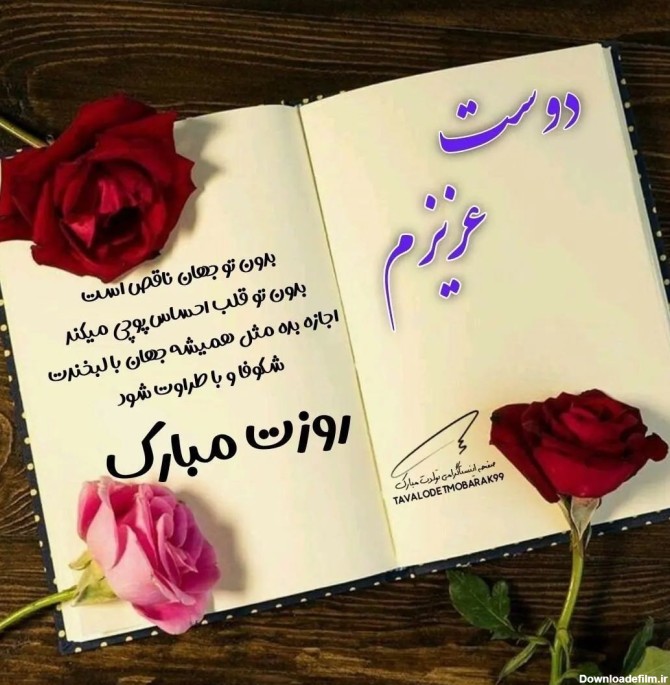 دوست
عزیزم
بدون تو جهان ناقص است
بدون تو قلب احساس پوچی میکند
اجازه بده مثل همیشه جهان با لبخندت
شکوفا و با طراوت شود
روزت مبارک
صفحه اینستاگرامی تولدت مبارک
TAVALODETMOBARAK99
Downloadefilm.ir